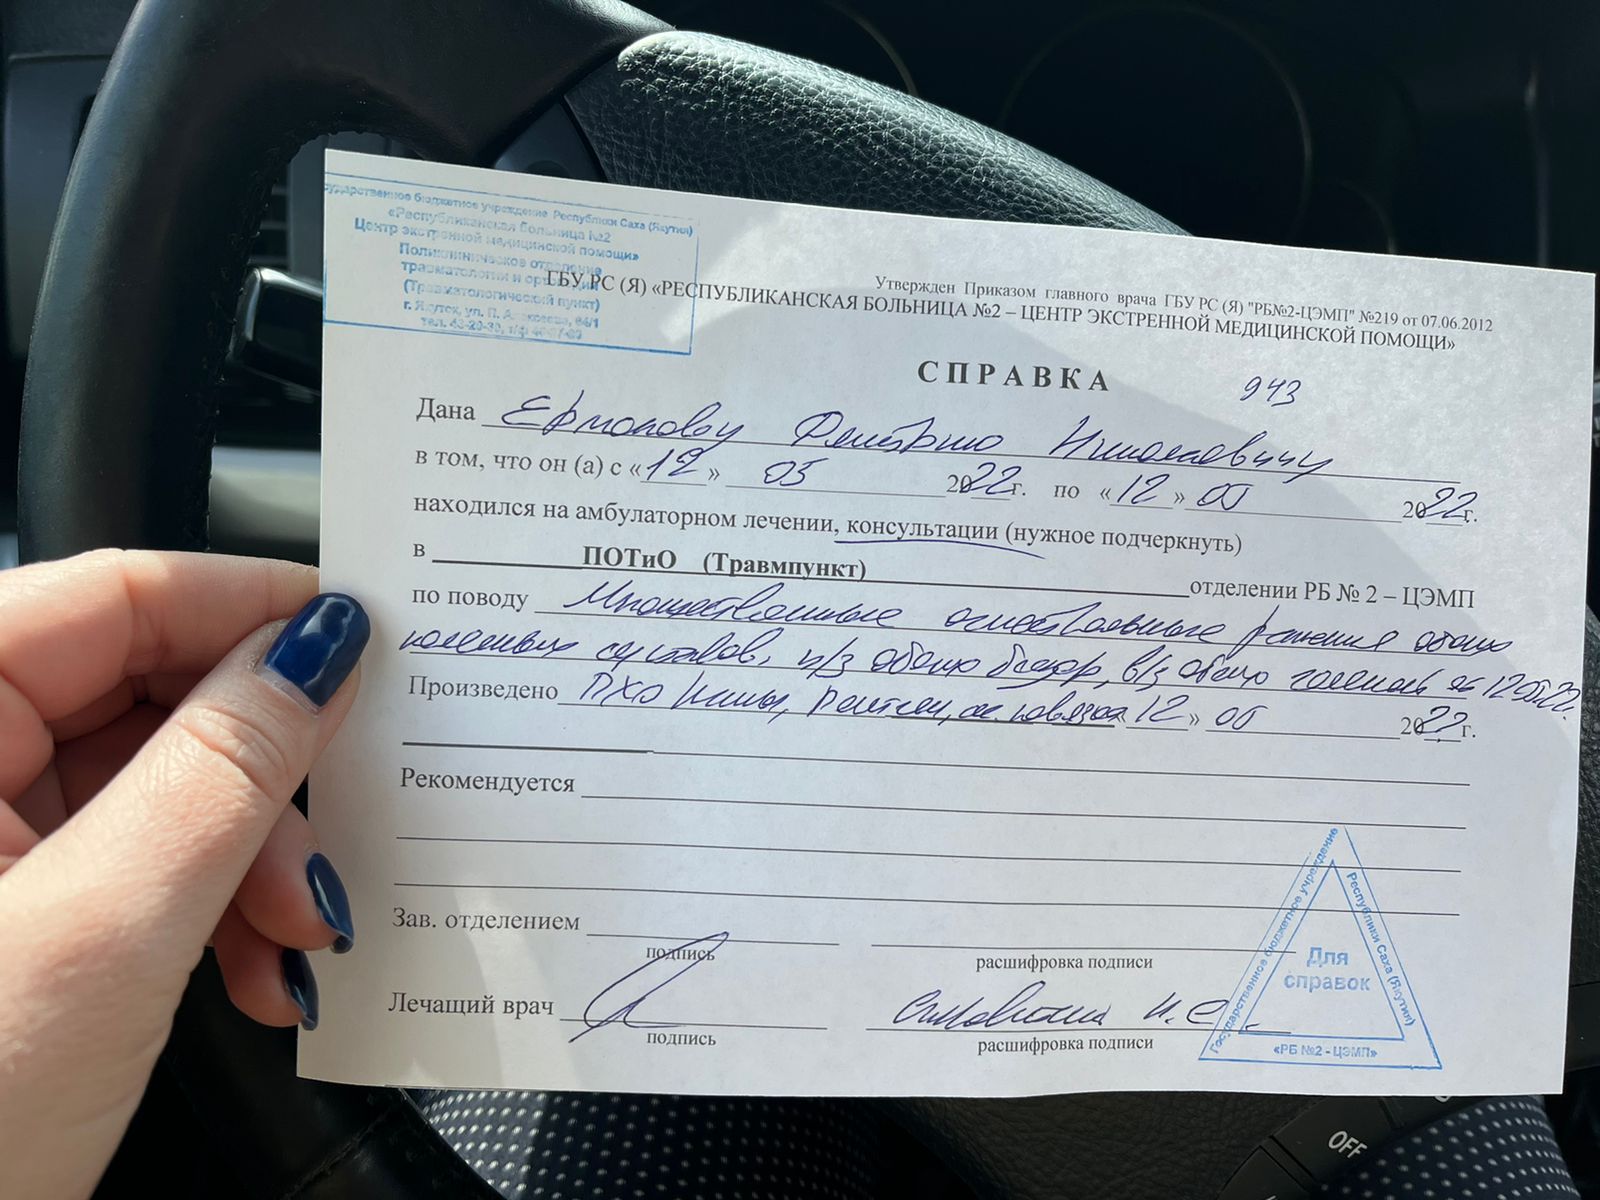 сударственное бюджетное учреждение Республики Саха (Якутия)
«Республиканская больница №2
Центр экстренной медицинской помощи»
Поликлиническое отделение
травматологии и ортопедии
(Травматологический пункт)
г. Якутск, ул. П. Алексеева, 64/1
Утвержден Приказом главного врача ГБУ РС (Я) "РБ№2-ЦЭМП" №219 от 07.06.2012
ГБУ РС (Я) «РЕСПУБЛИКАНСКАЯ БОЛЬНИЦА №2 – ЦЕНТР ЭКСТРЕННОЙ МЕДИЦИНСКОЙ ПОМОЩИ»
СПРАВКА 943
Дана Ермолову Дмитрию
в том, что он (а) с «12» 05 2022г. по «12» 05 2022г.
находился на амбулаторном лечении, консультации (нужное подчеркнуть)
в ПОТиО (Травмпункт) отделении РБ № 2 – ЦЭМП
по поводу Множественные огнестрельные ранения обоих
коленных суставов, н/з обоих бедер, в/з обоих голеней
Произведено ПХО раны, рентген, ас. повязка «12» 05 2022г.
Рекомендуется
Зав. отделением
подпись расшифровка подписи
Лечащий врач
подпись расшифровка подписи
Государственное бюджетное учреждение
Республики Саха (Якутия)
Для
справок
«РБ №2 - ЦЭМП»
OFF